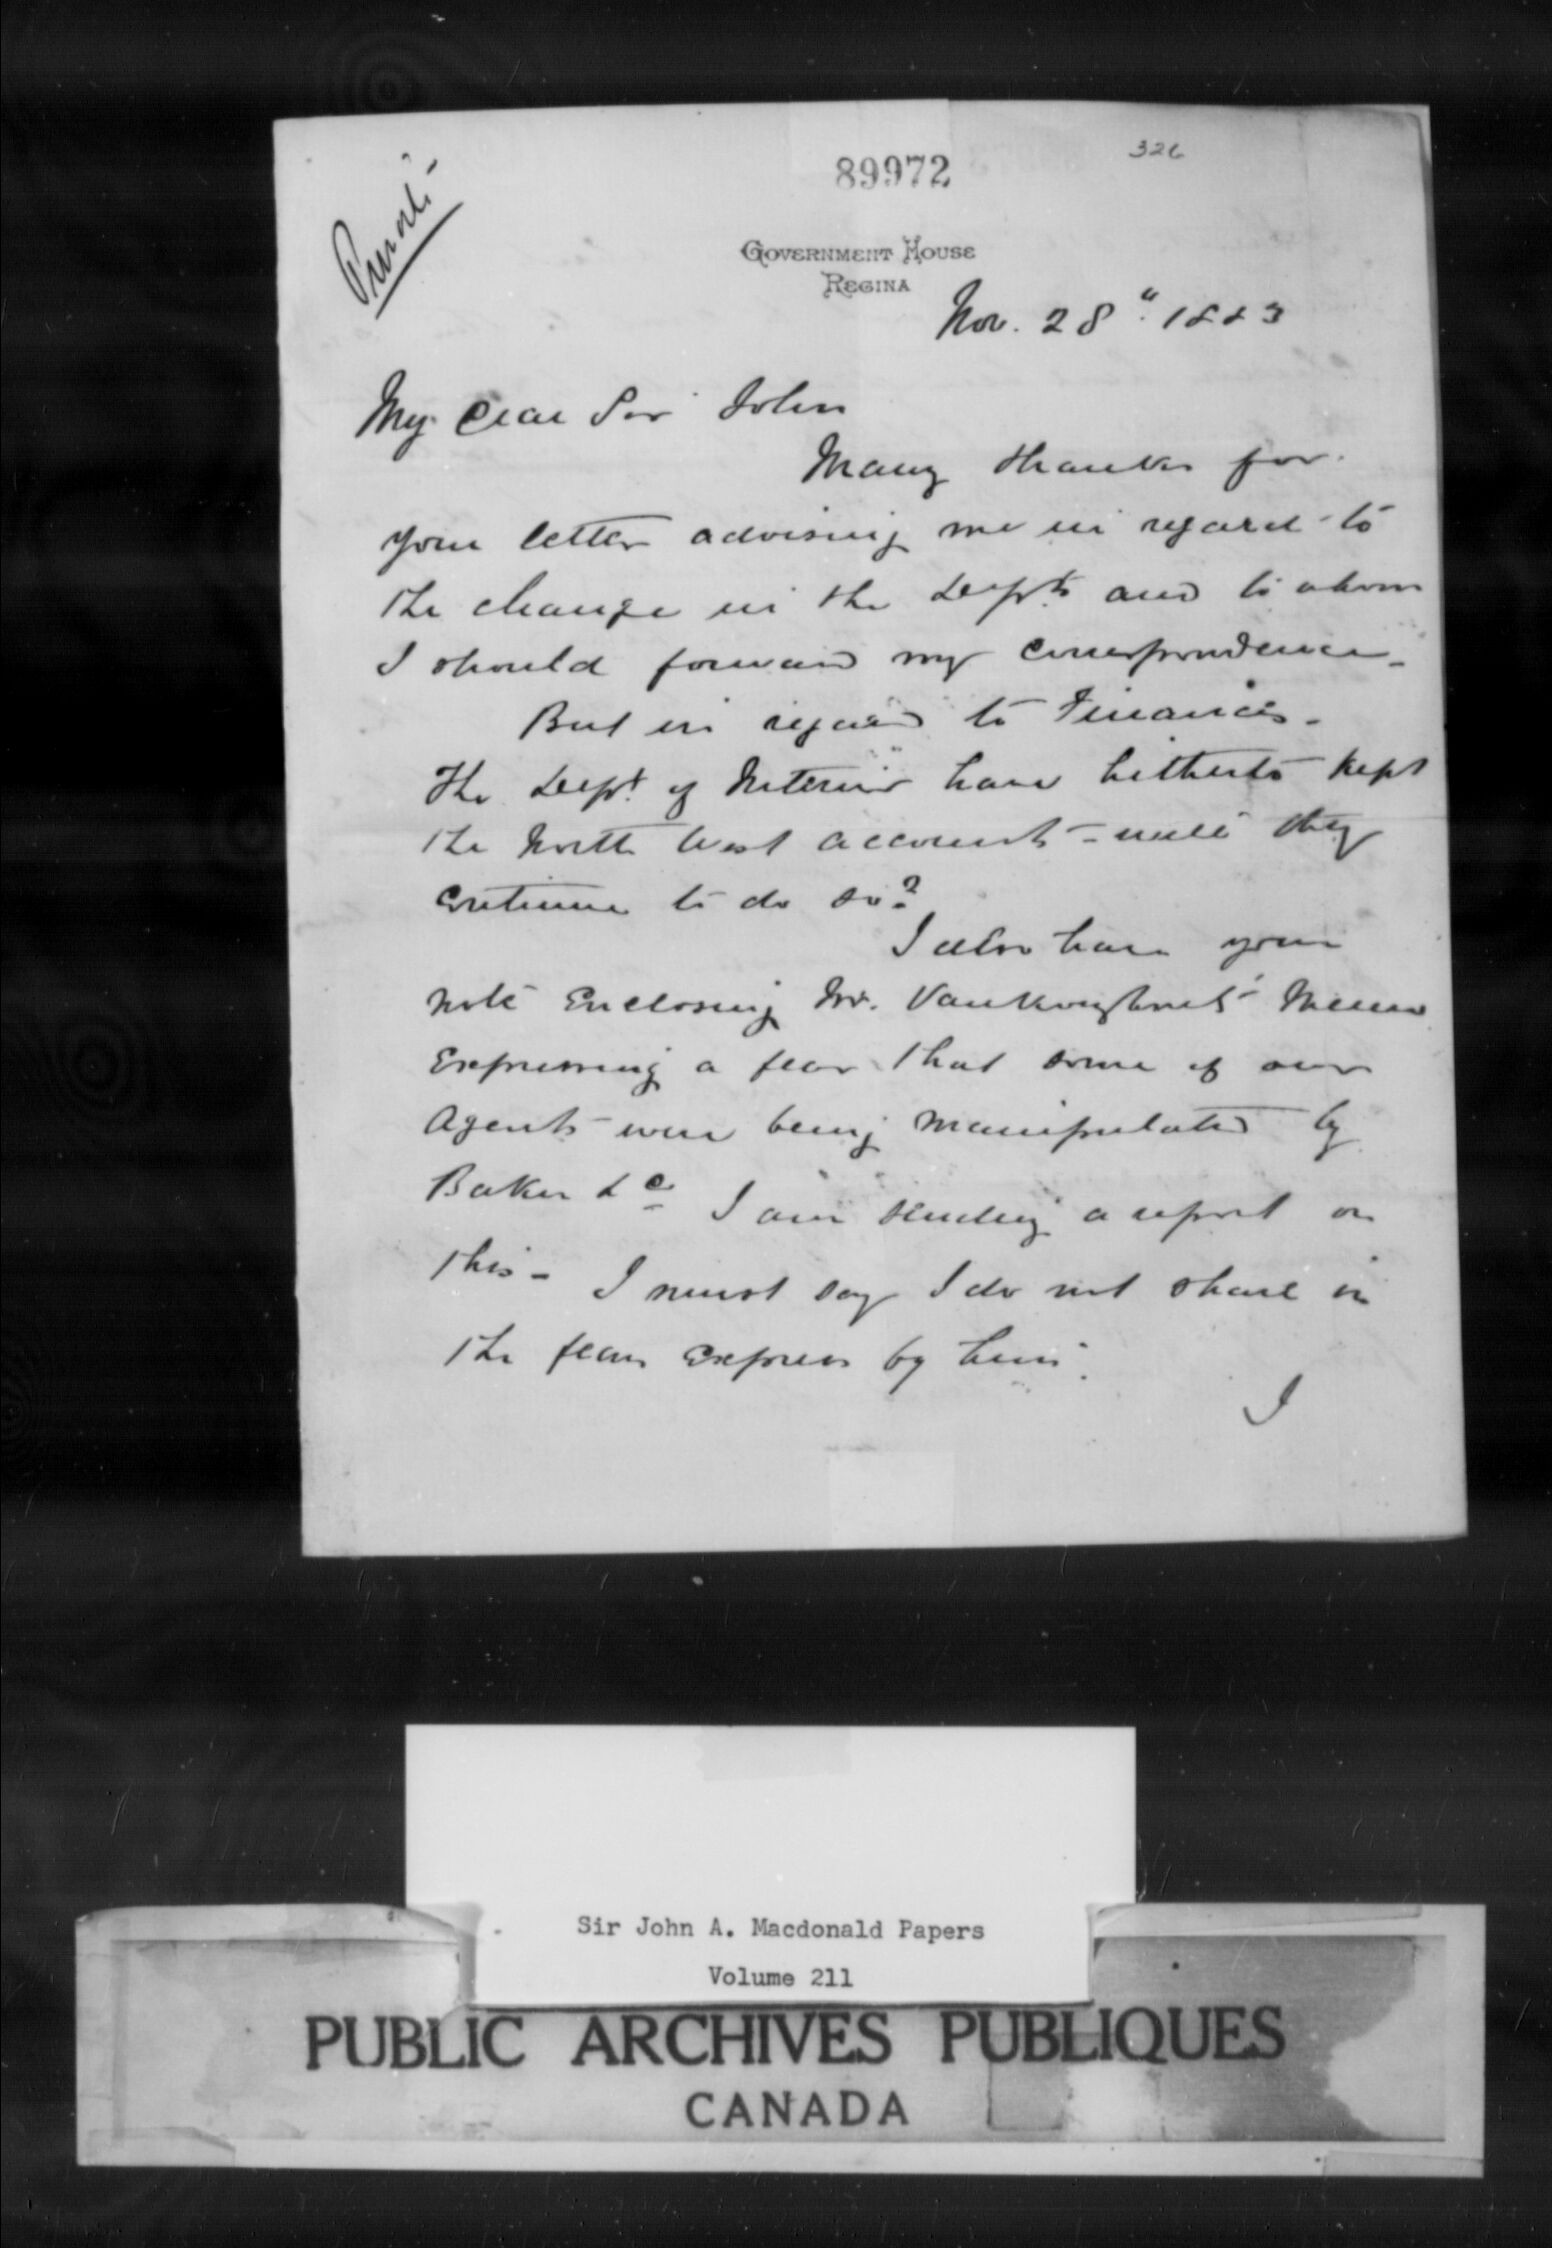 326
89972
Private
GOVERNMENT HOUSE
REGINA
Nov. 28" 1883
My dear Sir John
Many thanks for
your letter advising me in regard to
the change in the Depts and to whom
I should forward my correspondence -
But in regard to Finances -
The Dept of Interior have hitherto kept
the North West accounts - will they
continue to do so?
I also have your
note Enclosing Mr. Vankoughnet's Memo
Expressing a fear that some of our
Agents were being manipulated by
Baker & Co I am sending a report on
this - I must say I do not share in
the fears Express by him.
I
Sir John A. Macdonald Papers
Volume 211
PUBLIC ARCHIVES PUBLIQUES
CANADA